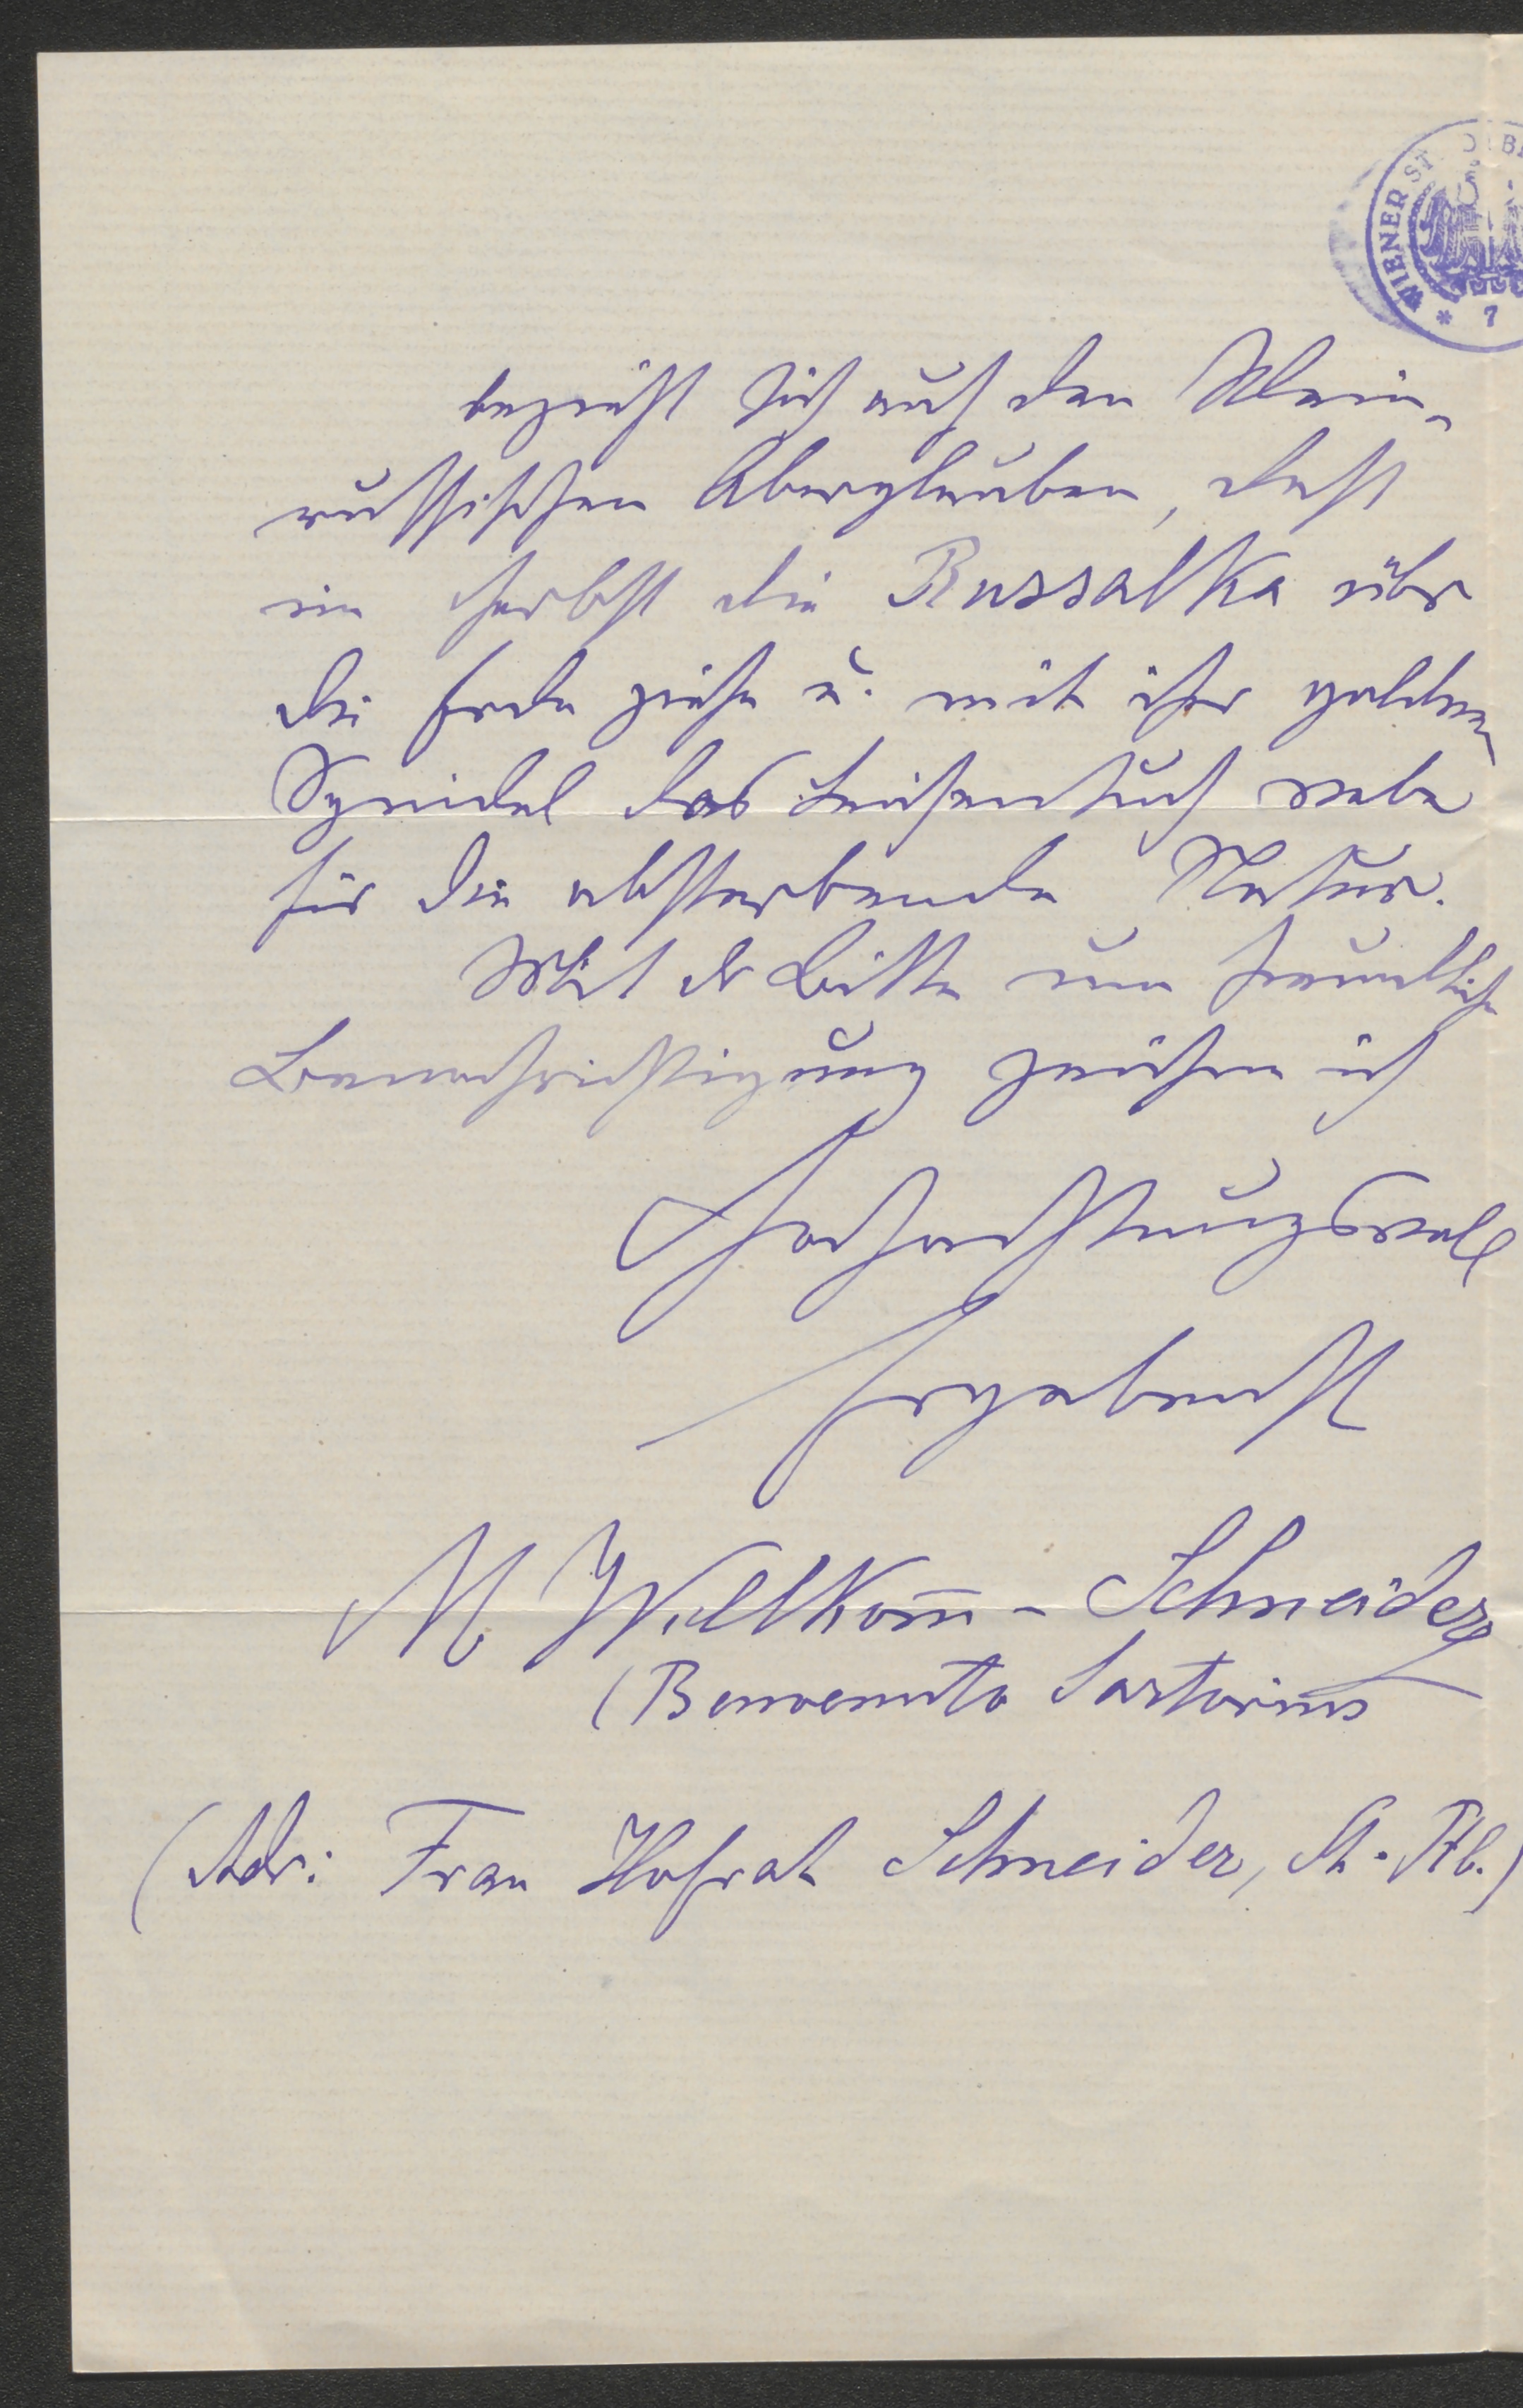 WIENER ST
* 7
bezieht sich auf den klein-
russischen Aberglauben, daß
im Herbst die Russalka über
die Erde ziehe u. mit ihrer goldenen
Spindel das Leichentuch webe
für die absterbende Natur.
Mit der Bitte um freundliche
Benachrichtigung zeichne ich
Hochachtungsvoll
Ergebenst
M. Willkom̅ - Schneider
(Benvenuto Sartorius
(Adr: Frau Hofrat Schneider,